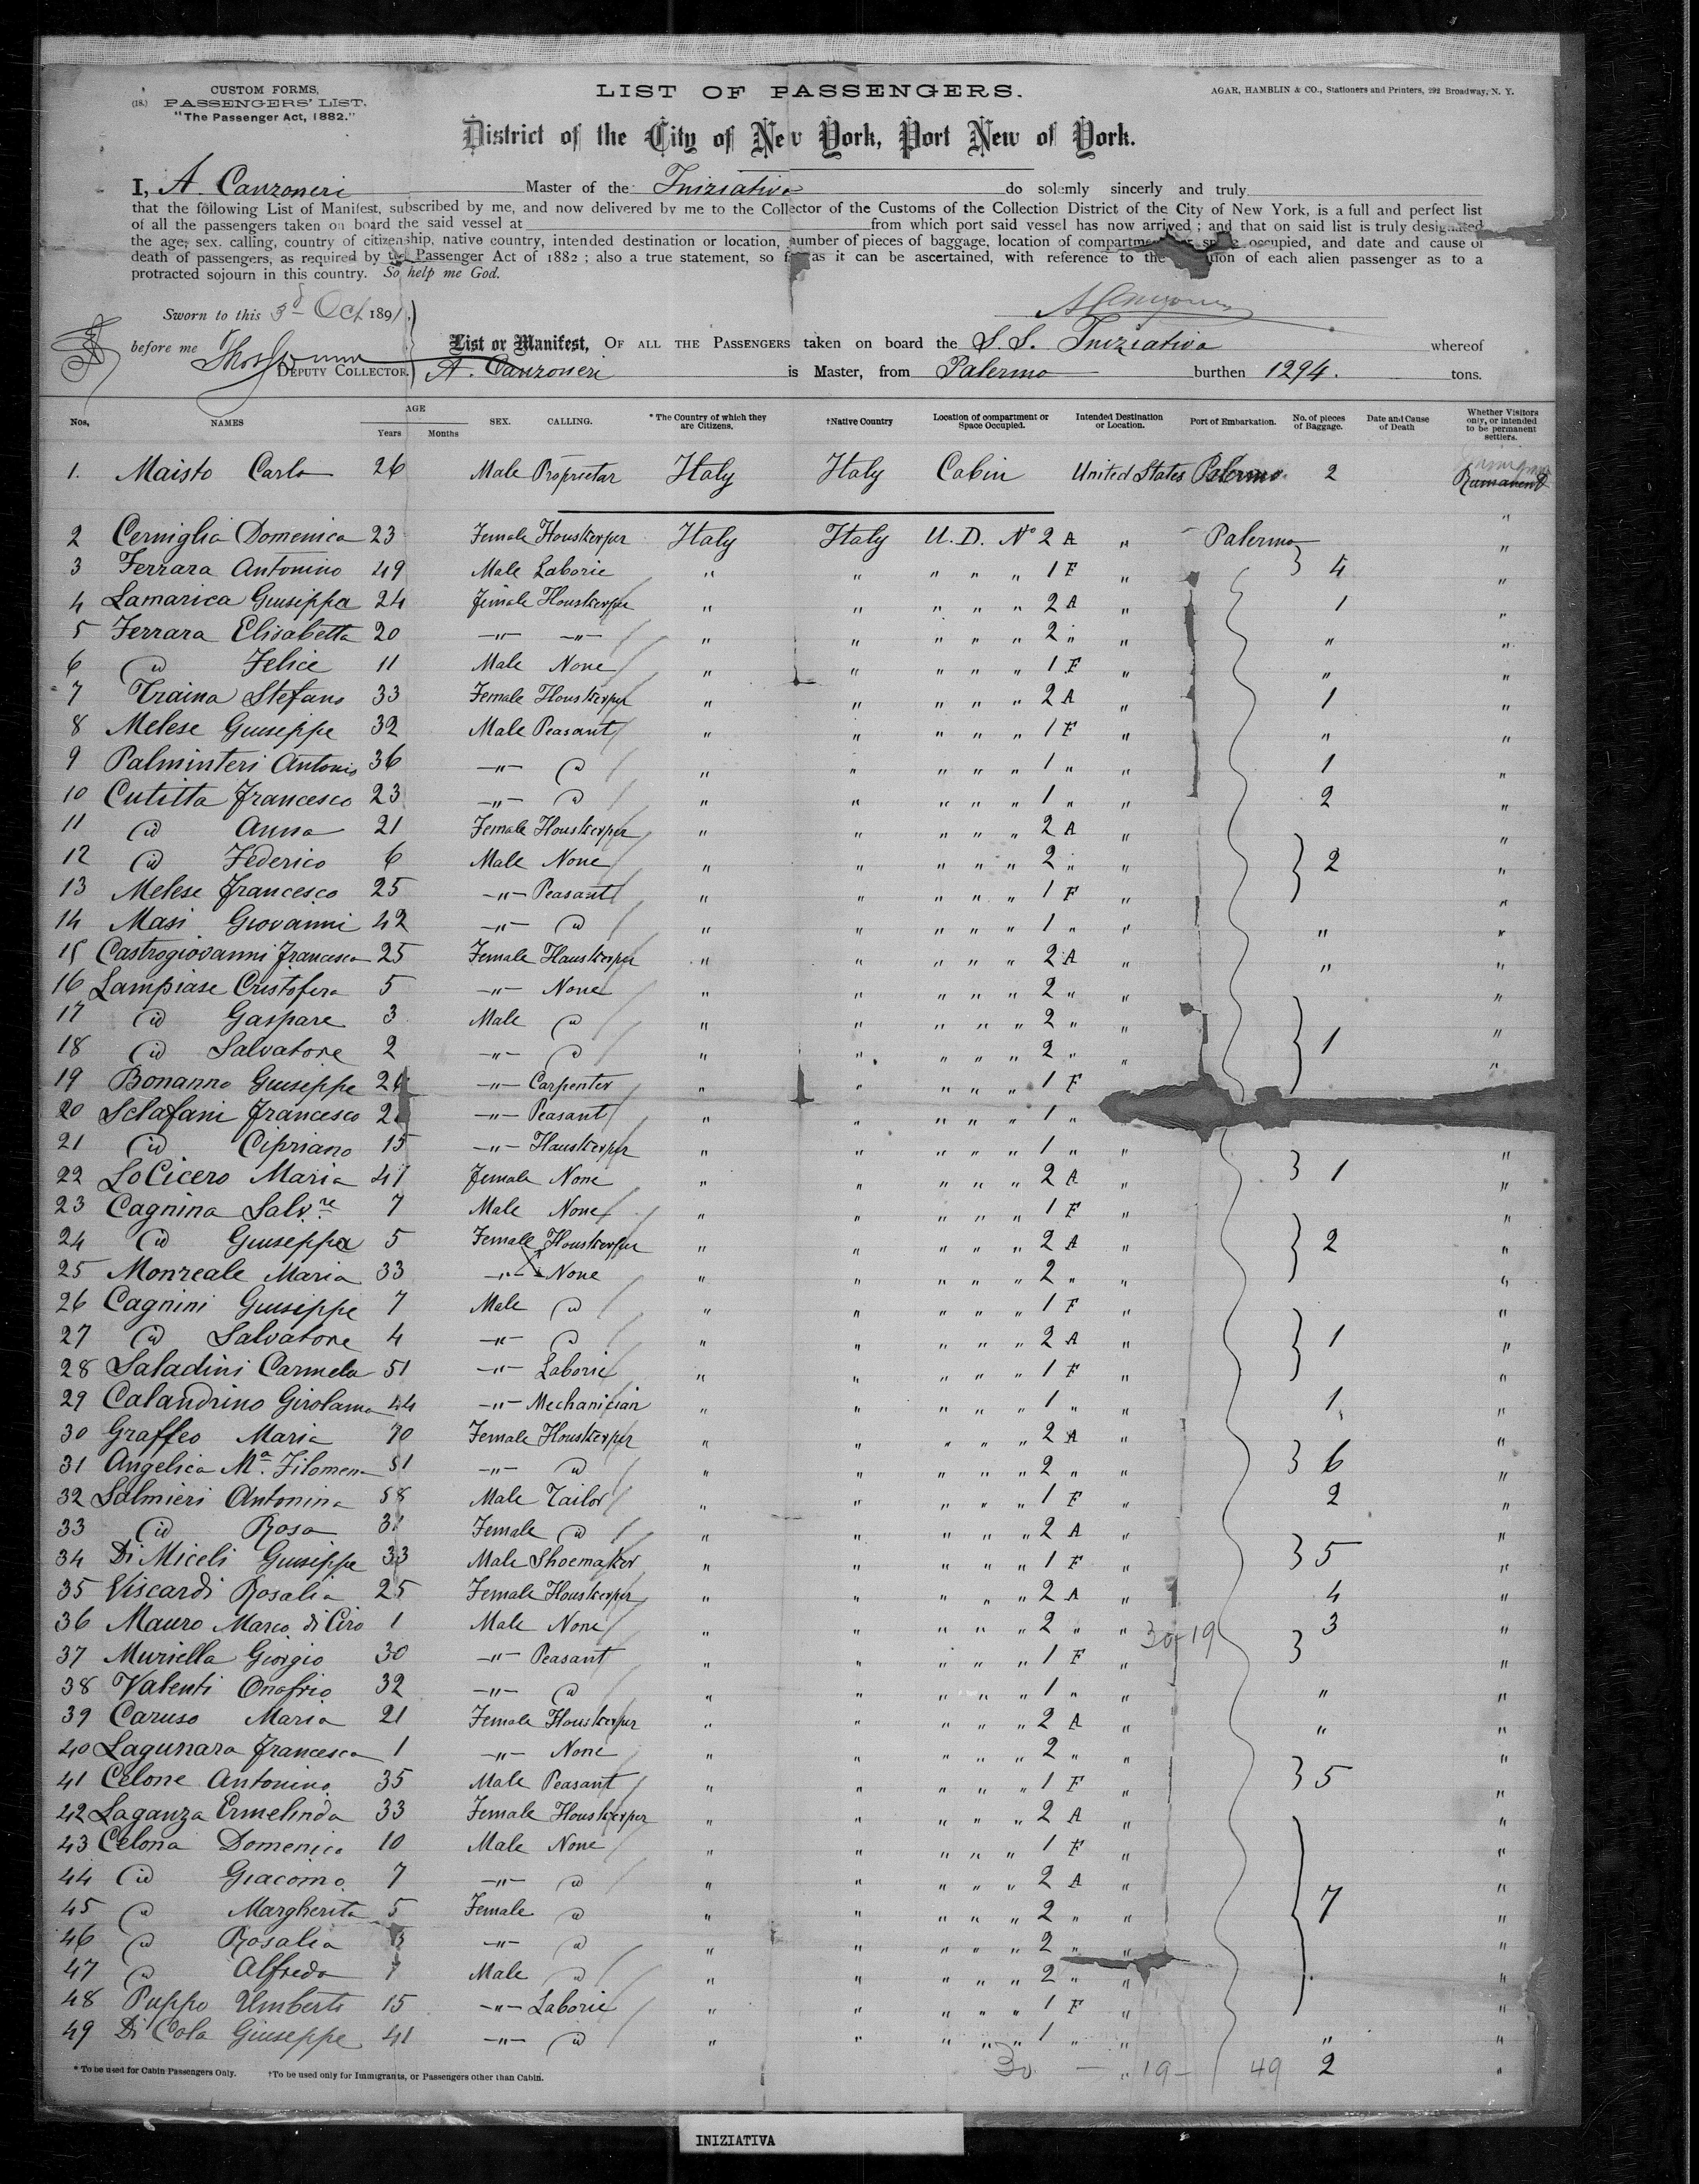 CUSTOM FORMS,
(18.) PASSENGERS' LIST.
"The Passenger Act, 1882."
LIST OF PASSENGERS.
AGAR, HAMBLIN & CO., Stationers and Printers, 292 Broadway, N. Y.
District of the City of New York, Port New of York.
I, A. Canzoneri Master of the Iniziativa do solemly sincerly and truly
that the following List of Manifest, subscribed by me, and now delivered by me to the Collector of the Customs of the Collection District of the City of New York, is a full and perfect list
of all the passengers taken on board the said vessel at from which port said vessel has now arrived ; and that on said list is truly designated
the age, sex. calling, country of citizenship, native country, intended destination or location, number of pieces of baggage, location of compartment or space occupied, and date and cause of
death of passengers, as required by the Passenger Act of 1882 ; also a true statement, so far as it can be ascertained, with reference to the of each alien passenger as to a
protracted sojourn in this country. So help me God.
Sworn to this 3d Oct 1891.
before me
DEPUTY COLLECTOR.
List or Manifest, OF ALL THE PASSENGERS taken on board the S. S. Iniziativa whereof
A. Canzoneri is Master, from Palermo burthen 1294. tons.
Nos, NAMES AGE Years Months SEX. CALLING. * The Country of which they are Citizens. †Native Country Location of compartment or Space Occupied. Intended Destination or Location. Port of Embarkation. No. of pieces of Baggage. Date and Cause of Death Whether Visitors only, or intended to be permanent settlers.
1. Maisto Carlo 26 Male Proprietar Italy Italy Cabin United States Palermo 2
2 Cerniglia Domenica 23 Female Houskerper Italy Italy U. D. No 2 A " Palermo "
3 Ferrara Antonino 49 Male Laborie " " " " " 1 F " 4 "
4 Lamarica Giuseppa 24 female Houskerper " " " " " 2 A " 1 "
5 Ferrara Elisabetta 20 -"- -"- " " " " " 2 " " " "
6 id Felice 11 Male None " " " " " 1 F " " "
7 Traina Stefano 33 Female Houskerper " " " " " 2 A " 1 "
8 Melese Giuseppe 32 Male Peasant " " " " " 1 F " " "
9 Palminteri Antonio 36 -"- id " " " " " 1 " " 1 "
10 Cutitta Francesco 23 -"- id " " " " " 1 " " 2 "
11 id Anna 21 Female Houskerper " " " " " 2 A " "
12 id Federico 6 Male None " " " " " 2 " " 2 "
13 Melese Francesco 25 -"- Peasant " " " " " 1 F " "
14 Masi Giovanni 42 -"- id " " " " " 1 " " " "
15 Castrogiovanni Francesca 25 Female Houskerper " " " " " 2 A " " "
16 Lampiase Cristofera 5 -"- None " " " " " 2 " " "
17 id Gaspare 3 Male id " " " " " 2 " " "
18 id Salvatore 2 -"- id " " " " " 2 " " 1 "
19 Bonanno Giuseppe -"- Carpenter " " " " " 1 F
20 Sclafani Francesco -"- Peasant " " " " " 1 "
21 id Cipriano 15 -"- Houskerper " " " " " 1 " " "
22 LoCicero Maria 41 female None " " " " " 2 A " 1 "
23 Cagnina Salvre 7 Male None " " " " " 1 F " "
24 id Giuseppa 5 Female Houskerper " " " " " 2 A " 2 "
25 Monreale Maria 33 -"- None " " " " " 2 " " "
26 Cagnini Giuseppe 7 Male id " " " " " 1 F " "
27 id Salvatore 4 -"- id " " " " " 2 A " 1 "
28 Saladini Carmela 51 -"- Laborie " " " " " 1 F " "
29 Calandrino Girolamo 44 -"- Mechanician " " " " " 1 " " 1 "
30 Graffeo Maria 70 Female Houskerper " " " " " 2 A " "
31 Angelica Ma. Filomena 51 -"- id " " " " " 2 " " 6 "
32 Salmieri Antonina 58 Male Tailor " " " " " 1 F " 2 "
33 id Rosa 31 Female id " " " " " 2 A " "
34 Di Miceli Giuseppe 33 Male Shoemaker " " " " " 1 F " 5 "
35 Viscardi Rosalia 25 Female Houskerper " " " " " 2 A " 4 "
36 Mauro Marco di Ciro 1 Male None " " " " " 2 " " 30-19 3 "
37 Muriella Giorgio 30 -"- Peasant " " " " " 1 F " "
38 Valenti Onofrio 32 -"- id " " " " " 1 " " " "
39 Caruso Maria 21 Female Houskerper " " " " " 2 A " " "
40 Lagunara Francesca 1 -"- None " " " " " 2 " " "
41 Celone Antonino 35 Male Peasant " " " " " 1 F " 5 "
42 Laganza Ermelinda 33 Female Houskerper " " " " " 2 A " "
43 Celona Domenico 10 Male None " " " " " 1 F " "
44 id Giacomo 7 -"- id " " " " " 2 A " "
45 id Margherita 5 Female id " " " " " 2 " " 7 "
46 id Rosalia 3 -"- id " " " " " 2 " " "
47 id Alfredo Male id " " " " " 2 " " "
48 Puppo Umberto 15 -"- Laborie " " " " " 1 F " "
49 Di Cola Giuseppe 41 -"- id " " " " " 1 " " " "
30 - 19 - 49 2 "
* To be used for Cabin Passengers Only. †To be used only for Immigrants, or Passengers other than Cabin.
INIZIATIVA